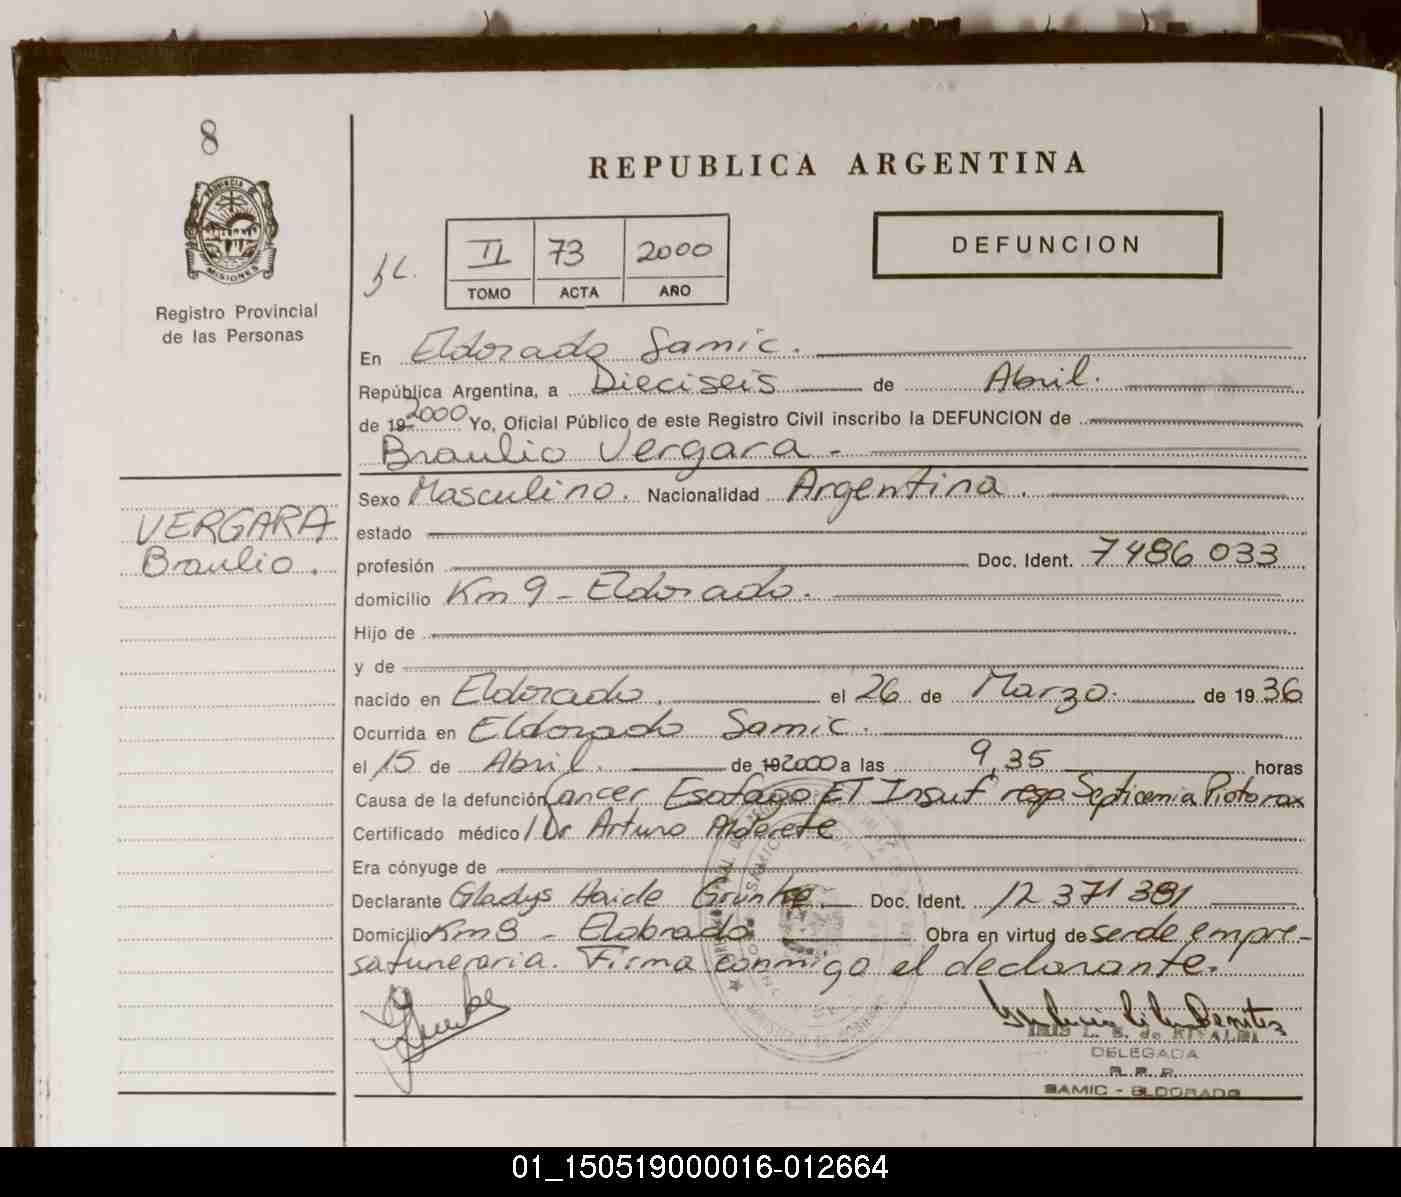 8
PROVINCIA DE
MISIONES
Registro Provincial
de las Personas
REPUBLICA ARGENTINA
II 73 2000
TOMO ACTA AÑO
DEFUNCION
En Eldorado Samic.
República Argentina, a Dieciseis de Abril.
de 19 2000 Yo, Oficial Público de este Registro Civil inscribo la DEFUNCION de
Braulio Vergara
Sexo Masculino. Nacionalidad Argentina.
VERGARA
Braulio.
estado
profesión Doc. Ident. 7486 033
domicilio Km 9 - Eldorado.
Hijo de
y de
nacido en Eldorado. el 26 de Marzo. de 19 36
Ocurrida en Eldorado Samic.
el 15 de Abril. de 19 2000 a las 9,35 horas
Causa de la defunción Cancer Esofago ET Insuf resp Septicemia Piotorax
Certificado médico Dr Arturo Alderete
Era cónyuge de
Declarante Gladys Haide Grunke. Doc. Ident. 12 371 391
Domicilio Km 8 - Eldorado Obra en virtud de ser de empre-
sa funeraria. Firma conmigo el declarante.
IRIS L. B. de RIVALDI
DELEGADA
R. P. P.
SAMIC - ELDORADO
01_150519000016-012664